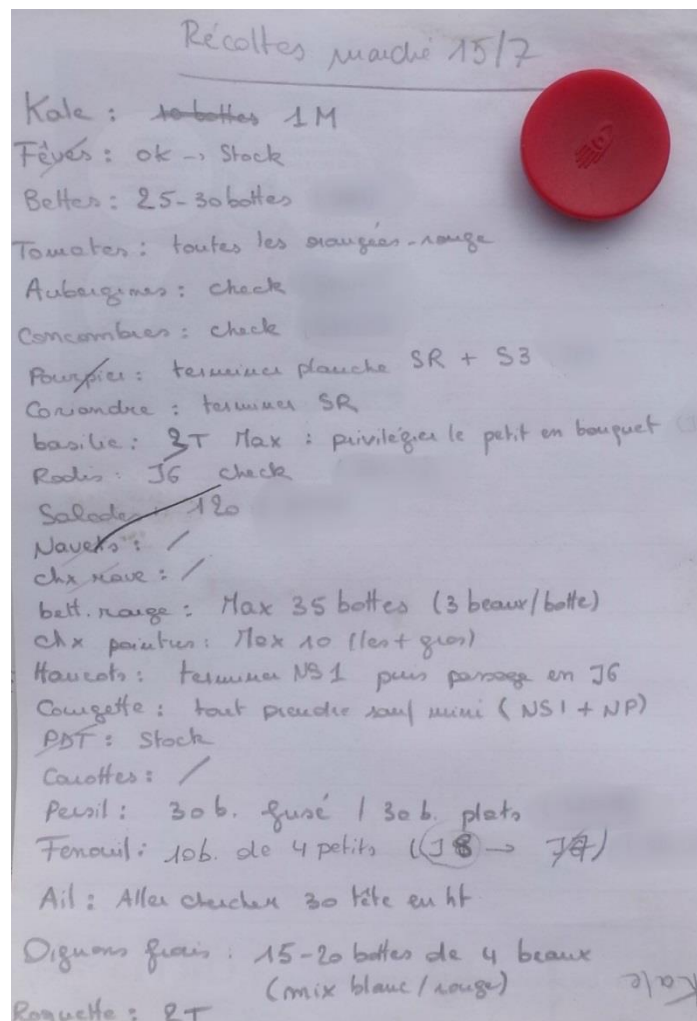 Récoltes marché 15/7
Kale : 10 bottes 1M
Fêves : ok -> Stock
Bettes : 25-30 bottes
Tomates : toutes les orangées-rouge
Aubergines : check
Concombres : check
Pourpier : terminer planche SR + S3
Coriandre : terminer SR
basilic : 3T Max : privilégier le petit en bouquet
Radis : J6 check
Salades : 120
Navets : /
chx rave : /
bett. rouge : Max 35 bottes (3 beaux/botte)
chx pointus : Max 10 (les + gros)
Haricots : terminer NS1 puis passage en J6
Courgette : tout prendre sauf mini (NS1 + NP)
PDT : Stock
Carottes : /
Persil : 30 b. frisé / 30 b. plats
Fenouil : 10b. de 4 petits (J8 ->
Ail : Aller chercher 30 tête en ht
Oignons frais : 15-20 bottes de 4 beaux
(mix blanc / rouge)
Kale
Roquette : 2T